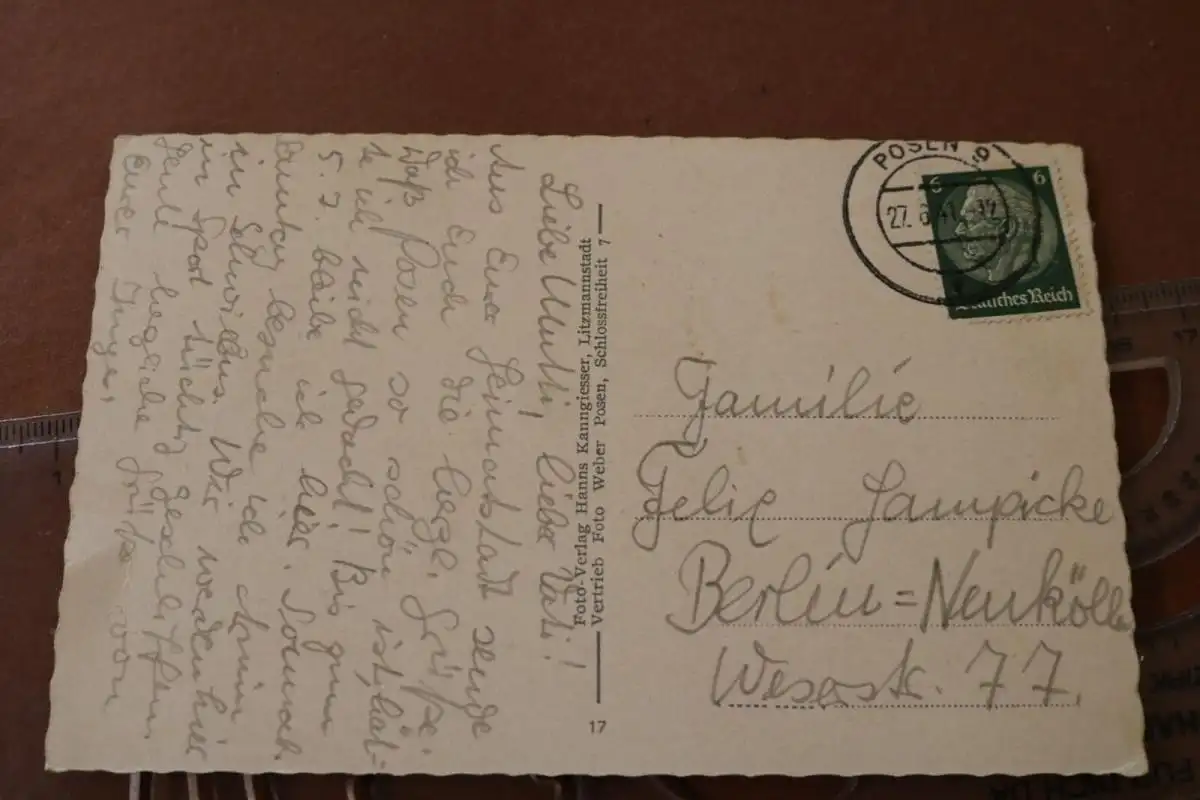 Liebe Mutti, lieber Vati!
Aus Euer Heimatstadt sende
ich Euch die herzl. Grüße.
Daß Posen so schön ist, hät-
te ich nicht gedacht! Bis zum
5. 7. bleibe ich hier. Sonnab.
besuche ich
in Wir werden hier
im Sport tüchtig geschliffen.
Herzliche Grüße von
Euer
Foto-Verlag Hanns Kanngiesser, Litzmannstadt
Vertrieb Foto Weber Posen, Schlossfreiheit 7
17
POSEN 9
27. 6. 41
6 6
Deutsches Reich
Familie
Felix Jampicke
Berlin=Neukölln
Weserstr. 77.